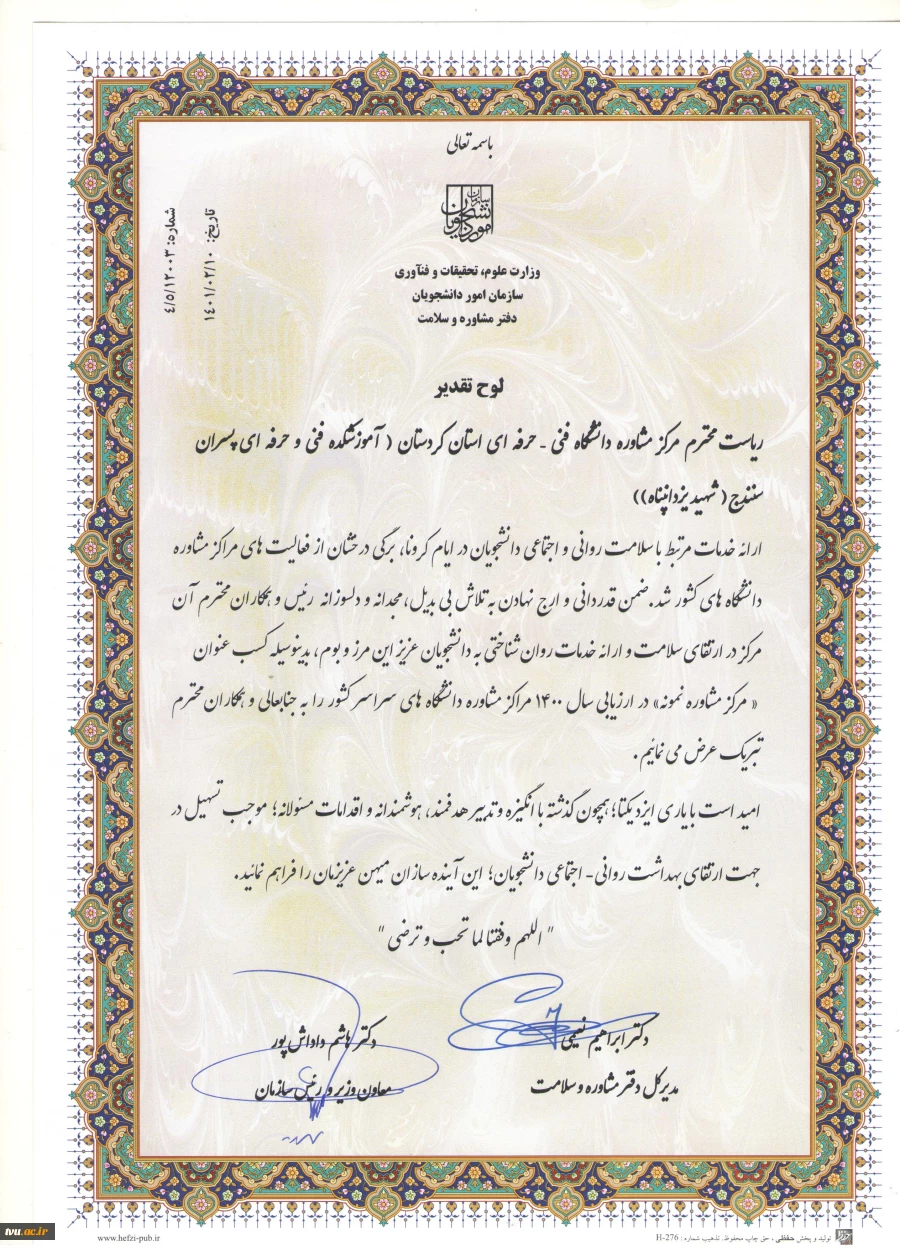 باسمه تعالی
سازمان امور دانشجویان
شماره: ۴/۵/۱۲۰۰۳
تاریخ: ۱۴۰۱/۰۲/۱۰
وزارت علوم، تحقیقات و فنآوری
سازمان امور دانشجویان
دفتر مشاوره و سلامت
لوح تقدیر
ریاست محترم مرکز مشاوره دانشگاه فنی - حرفه ای استان کردستان ( آموزشکده فنی و حرفه ای پسران
سنندج ( شهید یزدانپناه))
ارائه خدمات مرتبط با سلامت روانی و اجتماعی دانشجویان در ایام کرونا، برگی درخشان از فعالیت های مراکز مشاوره
دانشگاه های کشور شد. ضمن قدردانی و ارج نهادن به تلاش بی بدیل، مجدانه و دلسوزانه رئیس و همکاران محترم آن
مرکز در ارتقای سلامت و ارائه خدمات روان شناختی به دانشجویان عزیز این مرز و بوم، بدینوسیله کسب عنوان
« مرکز مشاوره نمونه» در ارزیابی سال ۱۴۰۰ مراکز مشاوره دانشگاه های سراسر کشور را به جنابعالی و همکاران محترم
تبریک عرض می نمائیم.
امید است با یاری ایزد یکتا؛ همچون گذشته با انگیزه و تدبیر هدفمند، هوشمندانه و اقدامات مسئولانه؛ موجب تسهیل در
جهت ارتقای بهداشت روانی - اجتماعی دانشجویان؛ این آینده سازان میهن عزیزمان را فراهم نمائید.
" اللهم وفقنا لما تحب و ترضی "
دکتر ابراهیم نعیمی
مدیرکل دفتر مشاوره و سلامت
دکتر هاشم داداش پور
معاون وزیر و رئیس سازمان
tvu.ac.ir
www.hefzi-pub.ir
تولید و پخش حفظی ، حق چاپ محفوظ. تذهیب شماره : H-276